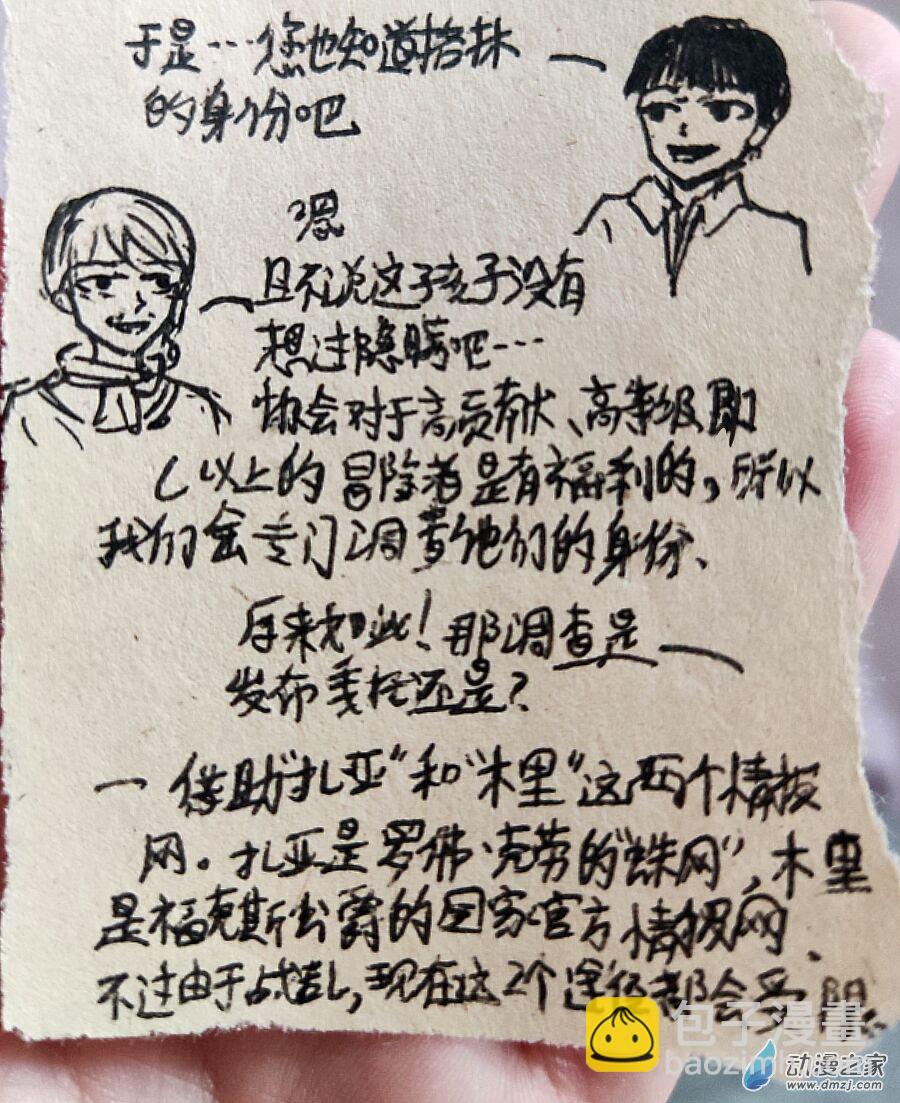 于是…您也知道捂抹
的身份吧
恩
且不说这孩子没有
想过隐瞒吧…
协会对于高贡献、高等级即
C以上的冒险者是有福利的，所以
我们会专门调查他们的身份、
原来如此！那调查是
发布委托还是？
一 借助"扎亚"和"木里"这两个情报
网。扎亚是罗佛·克劳的"蛛网"，木里
是福克斯公爵的国家官方情报网、
不过由于战乱，现在这2个途径都会受阻
包子漫畫
baozimh
动漫之家
www.dmzj.com